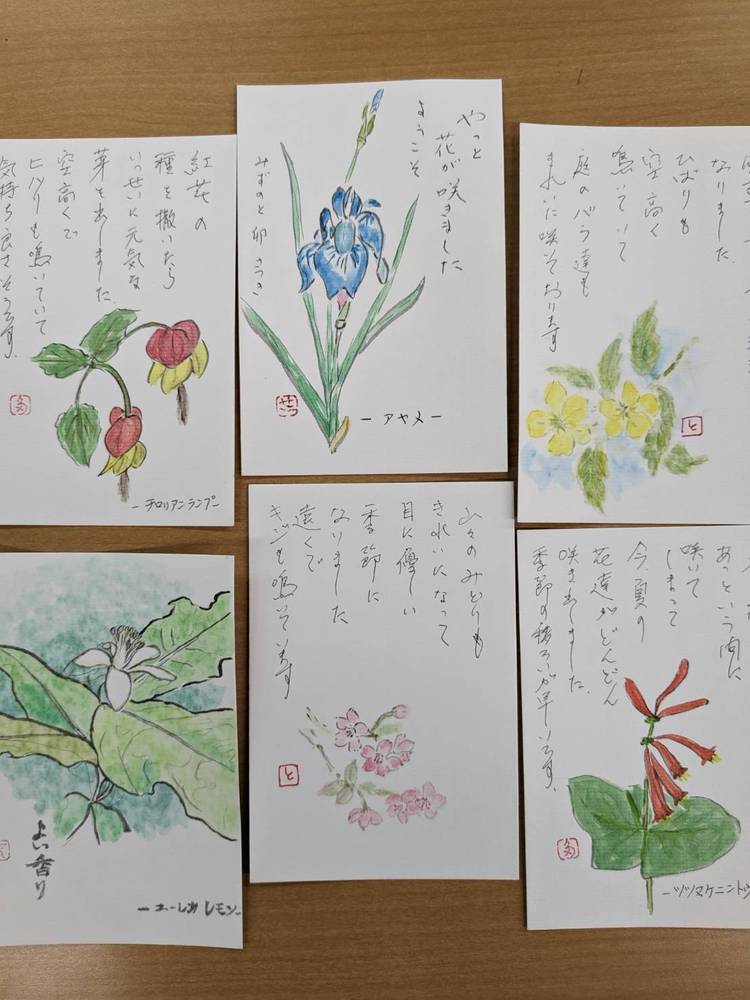 紅花の
種を撒いたら
いっせいに元気な
芽を出しました
空高くで
ヒバリも鳴いていて
気持ち良さそうです。
ーチロリアンランプー
やっと
花が咲きました
ようこそ
みずのと卯 さつき
せつこ
ーアヤメー
なりました
ひばりも
空高く
鳴いていて
庭のバラ達も
きれいに咲いております
と
よい香り
ーユーレカレモンー
山々のみどりも
きれいになって
目に優しい
季節に
なりました
遠くで
キジも鳴いています
と
あっという間に
咲いて
しまって
今、夏の
花達がどんどん
咲き出しました。
季節の移ろいが早いです。